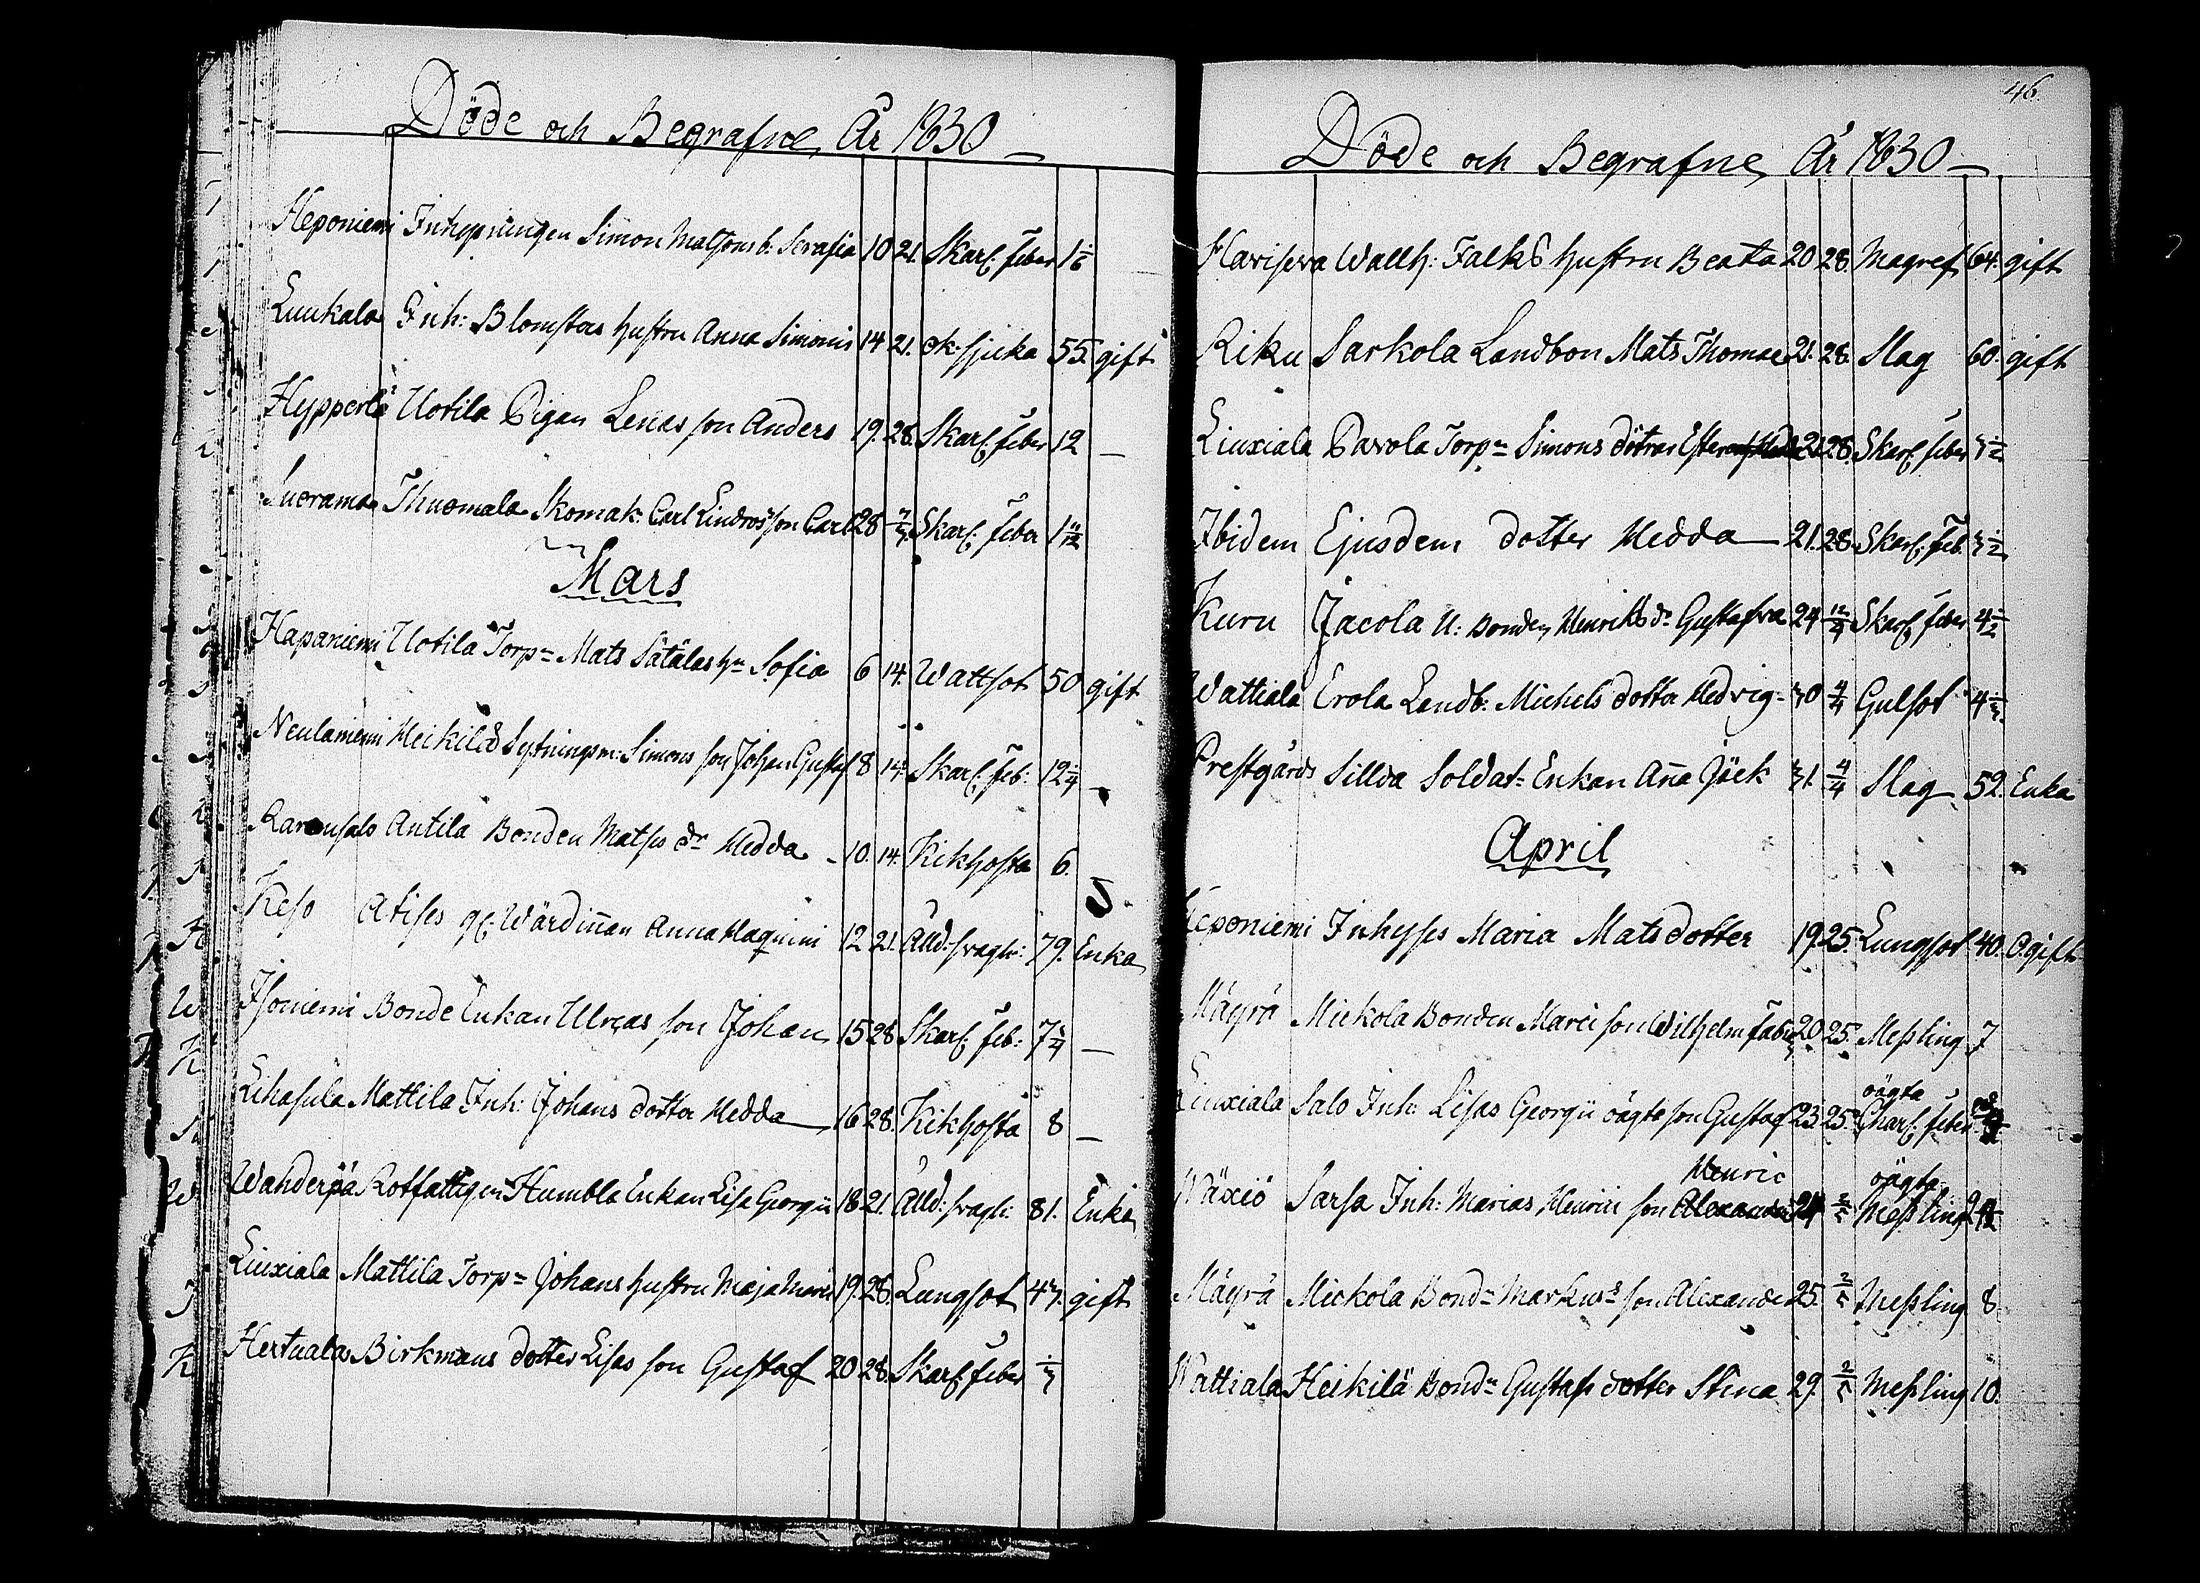 Döde och Begrafne År 1830
Heponiemi Inhysningen Simon Matssons b: Serafia 10 21. Skarl: feber 1 1/6
Luukala Inh: Blomsters hustru Anna Simonis 14 21. ok: sjuka 55. gift
Hypperlä Uotila Pigan Lenas son Anders 19. 28. Skarl: feber 12 —
Suorama Thuomala Skomak: Carl Lindros' son Carl 28 7/3 Skarl: feber 1 11/12
Mars
Hapaniemi Uotila Torp:n Mats Sätälas h:u Sofia 6 14. Wattsot 50 gift
Neulaniemi Heikilä Sytningsm: Simons son Johan Gustaf 8 14. Skarl: feb: 12 1/4 —
Antila Bonden Matses d:r Hedda 10. 14. Kikhosta 6.
Keso Atises gl: Wärdinnan Anna 12 21. Ålld: svagh: 79. Enka
Isoniemi Bonde Enkan Ulricas son Johan 15 28 Skarl: feb: 7 3/4 —
Lihasula Mattila Inh: Johans dotter Hedda 16 28. Kikhosta 8 —
Wahderpä Rotfattigen Humbla Enkan Lisa Georgii 18 21. Ålld: svagh: 81. Enka
Liuxiala Mattila Torp:n Johans hustru Maja 19. 28. Lungsot 43. gift
Hertuala Birkmans dotter Lisas son Gustaf 20 28. Skarl: feber 1/3
46.
Döde och Begrafne År 1830
Havisova Wallh: Falks hustru Beata 20 28. Magref 64. gift
Riku Sarkola Landbon Mats Thomae 21. 28. Slag 60. gift
Liuxiala Pavola Torp:n Simons dötrar Ester och Hedda 21. 28. Skarl: feber 3 1/2
Ibidem Ejusdem dotter Hedda 21. 28. Skarl: feb: 3 1/2
Kuru Jacola U: Bonden Henriks d:r Gustafva 24 12/4 Skarl: feber 4 1/2
Wattiala Erola Landb: Michels dotter Hedvig 30 4/4 Gulsot 4 1/3.
Prestgårds Sillda Soldat= Enkan Anna Jäck 31. 4/4 Slag 52. Enka
April
Heponiemi Inhyses Maria Matsdotter 19 25. Lungsot 40. Ogift
Mäyrä Mickola Bonden Marci son Wilhelm 20 25. Messling 7
oägta
Liuxiala Salo Inh: Lisas Georgii oägta son Gustaf 23 25. Charl: feber
Henric oägta
Wäxiö Sarsa Inh: Marias Henrici son Alexander 24 2/5 Messling
Mäyrä Mickola Bond:n Markus's son Alexander 25. 2/5 Messling 8.
Wattiala Heikilä Bond:n Gustafs dotter Stina 29. 2/5 Messling 10.